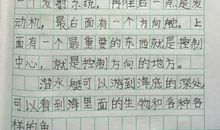 个发射系统，再往后一点是发
动机，最后面有一个方向舵。上
面有一个最重要的东西就是控制
中心，就是控制方向的地方。
潜水艇可以游到海底的深处，
可以看到海里面的生物和各种各
样的鱼